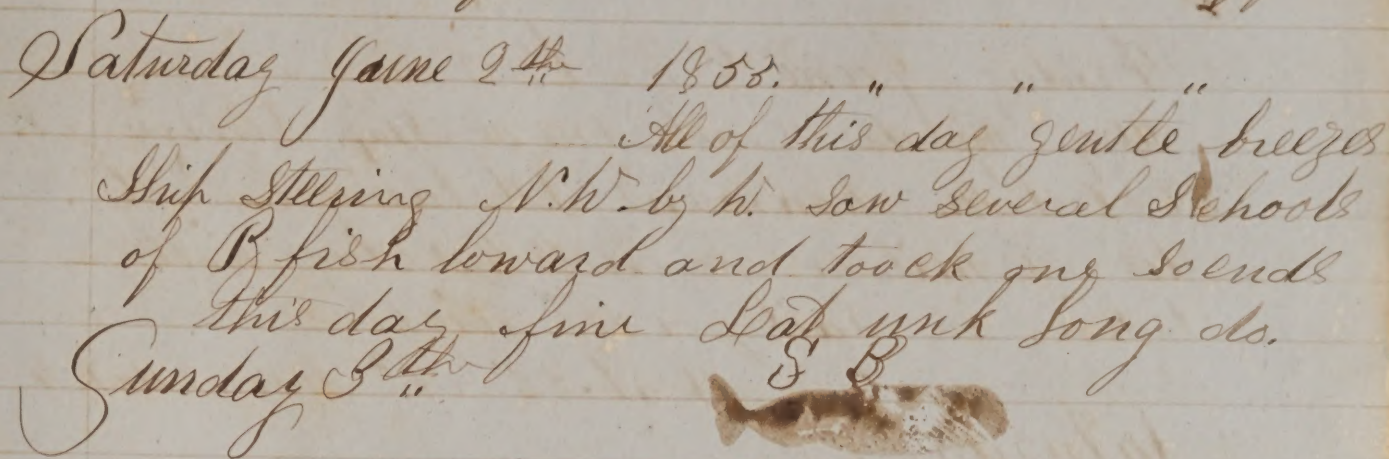 Saturday June 2th 1855. " " "
All of this day gentle breezes
Ship Steering N.W. by W. Saw several Schools
of B fish loward and toock one So ends
this day fine Lat unk Long do.
S B
Sunday 3th "